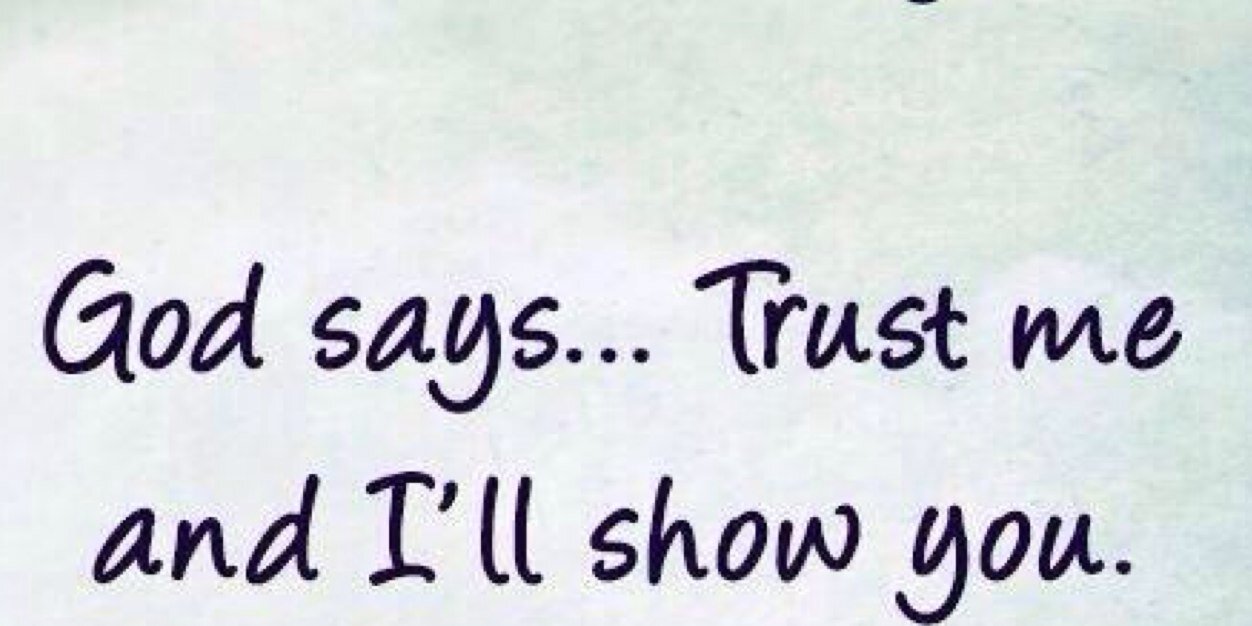 God says... Trust me
and I'll show you.